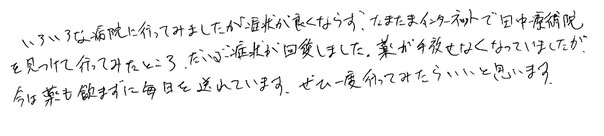 いろいろな病院に行ってみましたが症状が良くならず、たまたまインターネットで田中療術院
を見つけて行ってみたところ、だいぶ症状が回復しました。薬が手放せなくなっていましたが、
今は薬も飲まずに毎日を送れています。ぜひ一度行ってみたらいいと思います。